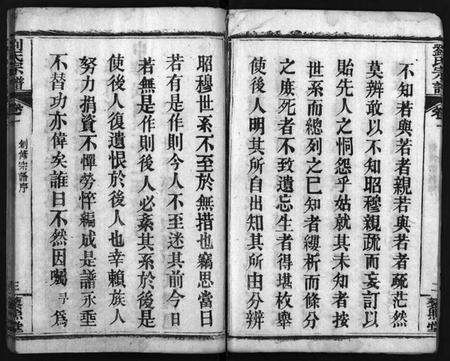 劉氏宗譜
卷一
藜照堂
不知若與若者親若與若者疏茫然
莫辨敢以不知昭穆親疏而妄訂以
貽先人之恫怨乎姑就其未知者按
世系而總列之已知者縷析而條分
之庶死者不致遺忘生者得堪枚舉
使後人明其所自出知其所由分辨
昭穆世系不至於無措也竊思當日
若有是作則今人不至迷其前今日
若無是作則後人必紊其系於後是
使後人復遺恨於後人也幸賴族人
努力捐資不憚勞瘁編成是譜永垂
不替功亦偉矣誰曰不然因囑爲
劉氏宗譜
卷一
創修宗譜序
三
藜照堂